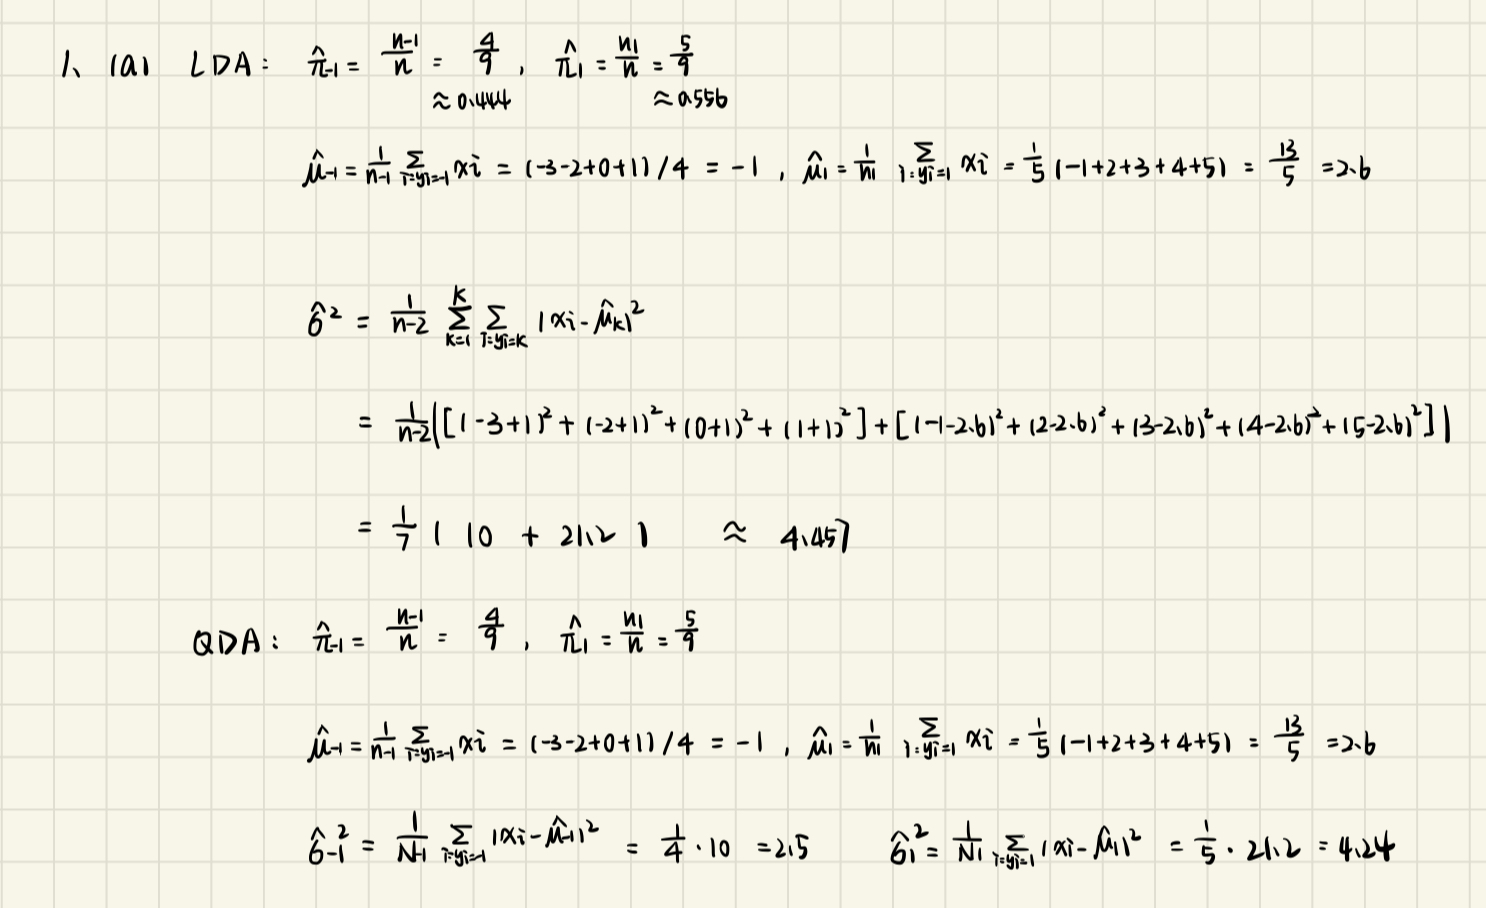 1、(a) LDA: π̂₋₁ = n₋₁/n = 4/9, π̂₁ = n₁/n = 5/9
≈ 0.444 ≈ 0.556
μ̂₋₁ = 1/n₋₁ Σ_{i:yi=-1} xi = (-3-2+0+1)/4 = -1, μ̂₁ = 1/n₁ Σ_{i:yi=1} xi = 1/5 (-1+2+3+4+5) = 13/5 = 2.6
σ̂² = 1/(n-2) Σ_{k=1}^{K} Σ_{i:yi=k} (xi - μ̂k)²
= 1/(n-2) ([(-3+1)² + (-2+1)² + (0+1)² + (1+1)²] + [(-1-2.6)² + (2-2.6)² + (3-2.6)² + (4-2.6)² + (5-2.6)²])
= 1/7 ( 10 + 21.2 ) ≈ 4.457
QDA: π̂₋₁ = n₋₁/n = 4/9, π̂₁ = n₁/n = 5/9
μ̂₋₁ = 1/n₋₁ Σ_{i:yi=-1} xi = (-3-2+0+1)/4 = -1, μ̂₁ = 1/n₁ Σ_{i:yi=1} xi = 1/5 (-1+2+3+4+5) = 13/5 = 2.6
σ̂₋₁² = 1/N₋₁ Σ_{i:yi=-1} (xi - μ̂₋₁)² = 1/4 · 10 = 2.5 σ̂₁² = 1/N₁ Σ_{i:yi=1} (xi - μ̂₁)² = 1/5 · 21.2 = 4.24